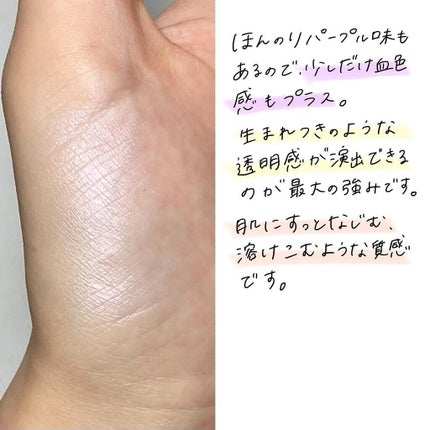 ほんのりパープル味も
あるので、少しだけ血色
感もプラス。
生まれつきのような
透明感が演出できる
のが最大の強みです。
肌にすっとなじむ、
溶けこむような質感
です。